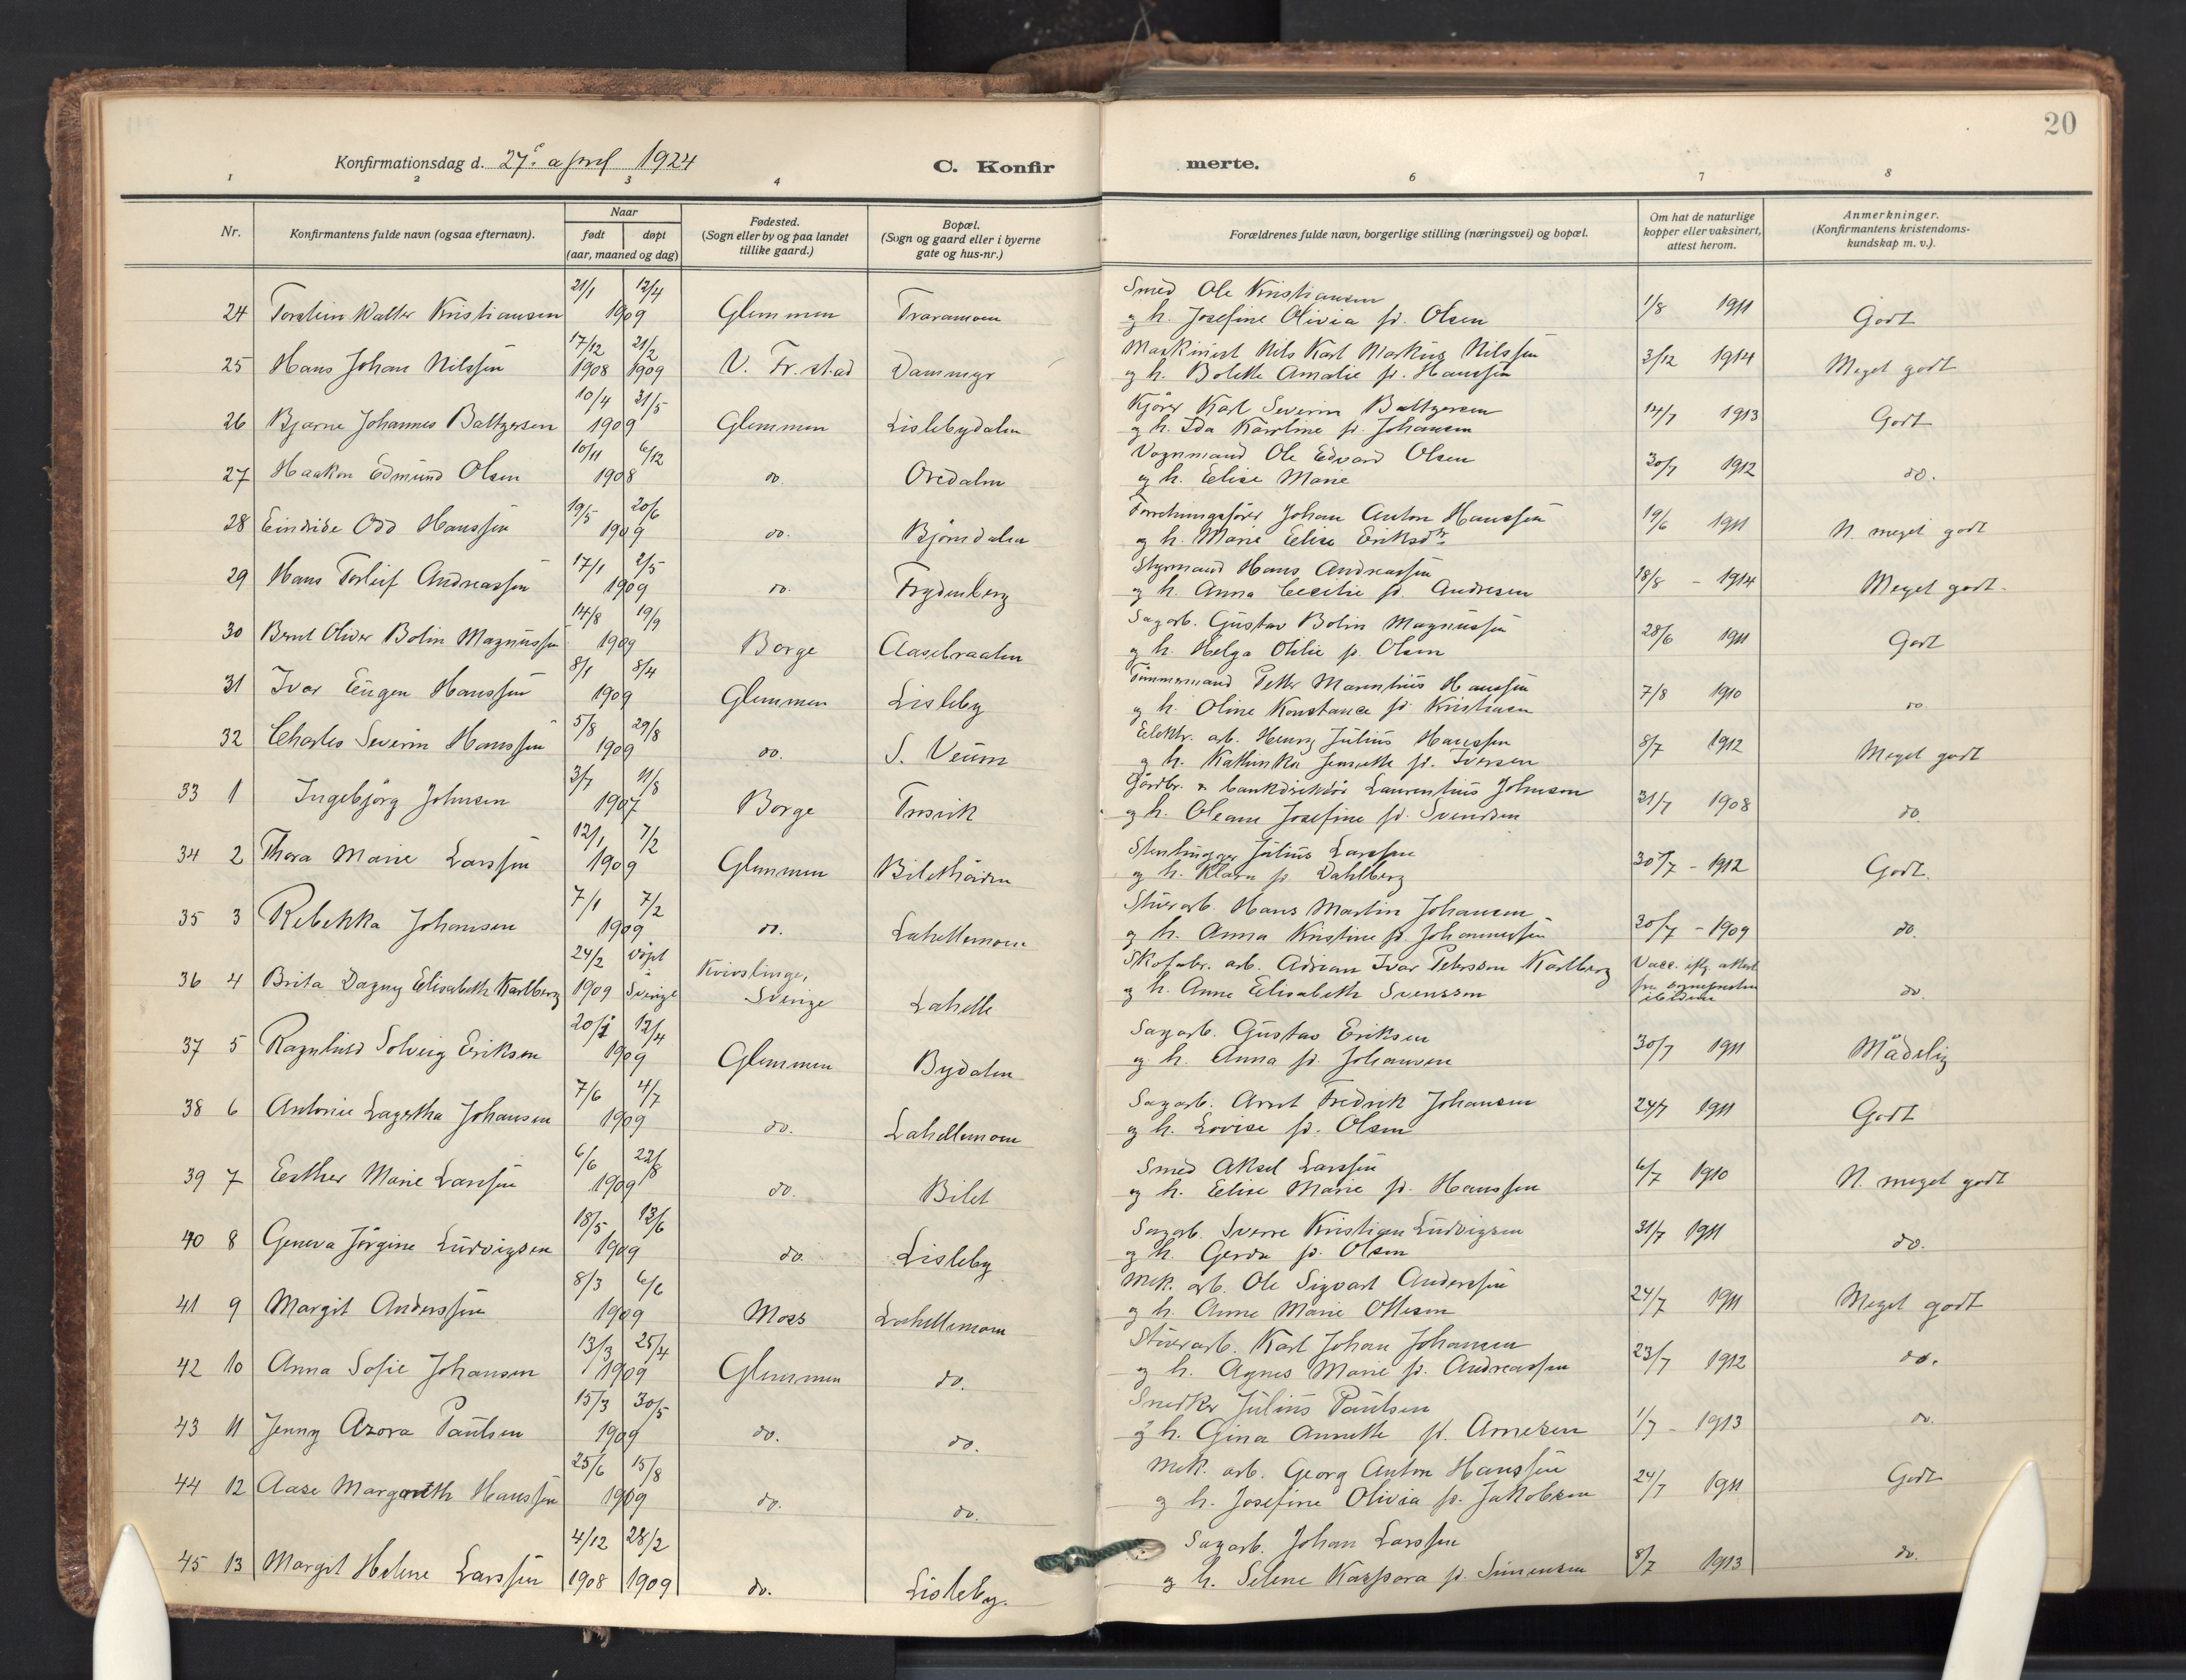 20
Konfirmationsdag d. 27de april 1924
C. Konfir merte.
1 2 3 4 6 7 8
Nr.
Konfirmantens fulde navn (ogsaa efternavn).
Naar
født døpt
(aar, maaned og dag)
Fødested.
(Sogn eller by og paa landet
tillike gaard.)
Bopæl.
(Sogn og gaard eller i byerne
gate og hus-nr.)
Forældrenes fulde navn, borgerlige stilling (næringsvei) og bopæl.
Om hat de naturlige
kopper eller vaksinert,
attest herom.
Anmerkninger.
(Konfirmantens kristendoms-
kundskap m. v.).
21/1 12/4 Smed Ole Kristiansen
24 Torstein Walter Kristiansen 1909 Glemmen Traramoen og h. Josefine Olivia fd. Olsen 1/8 1911 Godt
17/12 21/2 Maskinist Nils Karl Markus Nilssen
25 Hans Johan Nilssen 1908 1909 V. Fr.stad Dammyr og h. Bolette Amalie fd. Hanssen 3/12 1914 Meget godt
10/4 31/5 Kjører Karl Severin Baltzersen
26 Bjarne Johannes Baltzersen 1909 Glemmen Lislebydalen og h. Ida Karoline fd. Johansen 14/7 1913 Godt
10/11 6/12 Vognmand Ole Edvard Olsen
27 Haakon Edmund Olsen 1908 do. Oredalen og h. Elise Marie 30/7 1912 do.
19/5 20/6 Forretningsfører Johan Anton Hanssen
28 Eindride Odd Hanssen 1909 do. Bjørndalen og h. Marie Elise Eriksdtr. 19/6 1911 N. meget godt
17/1 2/5 Styrmand Hans Andreassen
29 Hans Torleif Andreassen 1909 do. Frydenberg og h. Anna Cecilie fd. Andresen 18/8 - 1914 Meget godt.
14/8 19/9 Sagarb. Gustav Bolin Magnussen
30 Bernt Oliver Bolin Magnussen 1909 Borge Aaselraalen og h. Helga Otilie fd. Olsen 28/6 1911 Godt
8/1 8/4 Tømmermand Petter Marentius Hanssen
31 Ivar Eugen Hanssen 1909 Glemmen Lisleby og h. Oline Konstance fd. Kristiansen 7/8 1910 do
5/8 29/8 Elektr. arb. Henry Julius Hanssen
32 Charles Severin Hanssen 1909 do. S. Veum og h. Kathinka Jensette fd. Iversen 8/7 1912 Meget godt
3/7 11/8 Gårdbr. & bankdirektør Laurentius Johnsen
33 1 Ingebjørg Johnsen 1907 Borge Torsvik og h. Oleane Josefine fd. Svendsen 31/7 1908 do.
12/1 7/2 Stenhugger Julius Larssen
34 2 Thora Marie Larssen 1909 Glemmen og h. Klara fd. Dahlberg 30/7 - 1912 Godt.
7/1 7/2 Stuerarb. Hans Martin Johansen
35 3 Rebekka Johansen 1909 do. Lahellemoen og h. Anna Kristine fd. Johannessen 30/7 - 1909 do.
24/2 døpt i Kvivslinge, Skofabr. arb. Adrian Ivar Petersson Karlberg Vacc. iflg. attest
36 4 Brita Dagny Elisabeth Karlberg 1909 Sverige Sverige Lahelle og h. Anna Elisabeth Svensson fra sognepresten ibidem do.
20/1 12/4 Sagarb. Gustav Eriksen
37 5 Ragnhild Solveig Eriksen 1909 Glemmen Bydalen og h. Anna fd. Johansen 30/7 1911 Mådelig
7/6 4/7 Sagarb. Arnt Fredrik Johansen
38 6 Antonie Lagertha Johansen 1909 do. Lahellemoen og h. Lovise fd. Olsen 24/7 1911 Godt
6/6 22/8 Smed Aksel Larssen
39 7 Esther Marie Larssen 1909 do. Bilet og h. Elise Marie fd. Hanssen 6/7 1910 N. meget godt
18/5 13/6 Sagarb. Sverre Kristian Ludvigsen
40 8 Geneva Jørgine Ludvigsen 1909 do. Lisleby og h. Gerda fd. Olsen 31/7 1911 do.
8/3 6/6 Mek. arb. Ole Sigvart Anderssen
41 9 Margit Anderssen 1909 Moss Lahellemoen og h. Anne Marie Ottesen 24/7 1911 Meget godt
13/3 25/4 Stuerarb. Karl Johan Johansen
42 10 Anna Sofie Johansen 1909 Glemmen do. og h. Agnes Marie fd. Andreassen 23/7 1912 do.
15/3 30/5 Snedker Julius Paulsen
43 11 Jenny Azora Paulsen 1909 do. do. og h. Gina Annette fd. Arnesen 1/7 - 1913 do.
25/6 15/8 Mek. arb. Georg Anton Hanssen
44 12 Aase Margareth Hanssen 1909 do. do. og h. Josefine Olivia fd. Jakobsen 24/7 1911 Godt
4/12 28/2 Sagarb. Johan Larssen
45 13 Margit Helene Larssen 1908 1909 do. Lisleby. og h. Selene Kaspara fd. Simensen 8/7 1913 do.